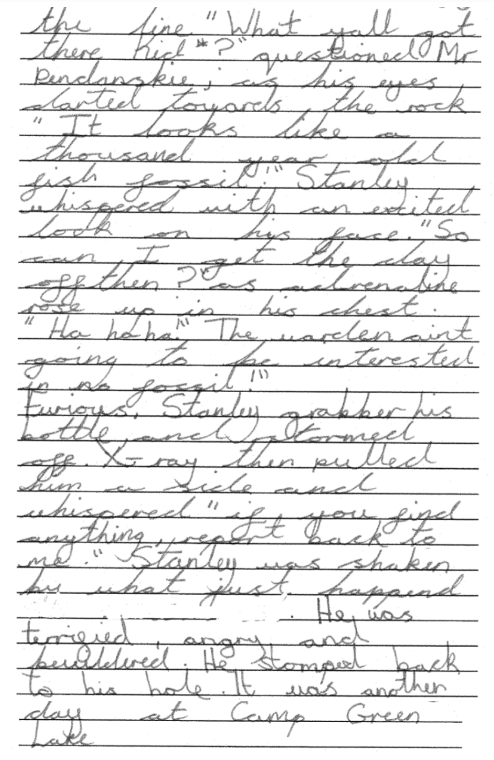 the line "What yall got
there kid"? questioned Mr
Pendanskie, as his eyes
darted towards the rock
"It looks like a
thousand year old
fish fossil!" Stanley
whispered with an excited
look on his face. "So
can I get the day
off then?" as adrenaline
rose up in his chest.
"Ha ha ha!" The warden aint
going to be interested
in no fossil!"
Furious, Stanley grabber his
bottle and stormed
off. X-ray then pulled
him a side and
whispered "if you find
anything, report back to
me." Stanley was shaken
by what just happend
. He was
terrified, angry and
bewildered. He stomped back
to his hole. It was another
day at Camp Green
Lake